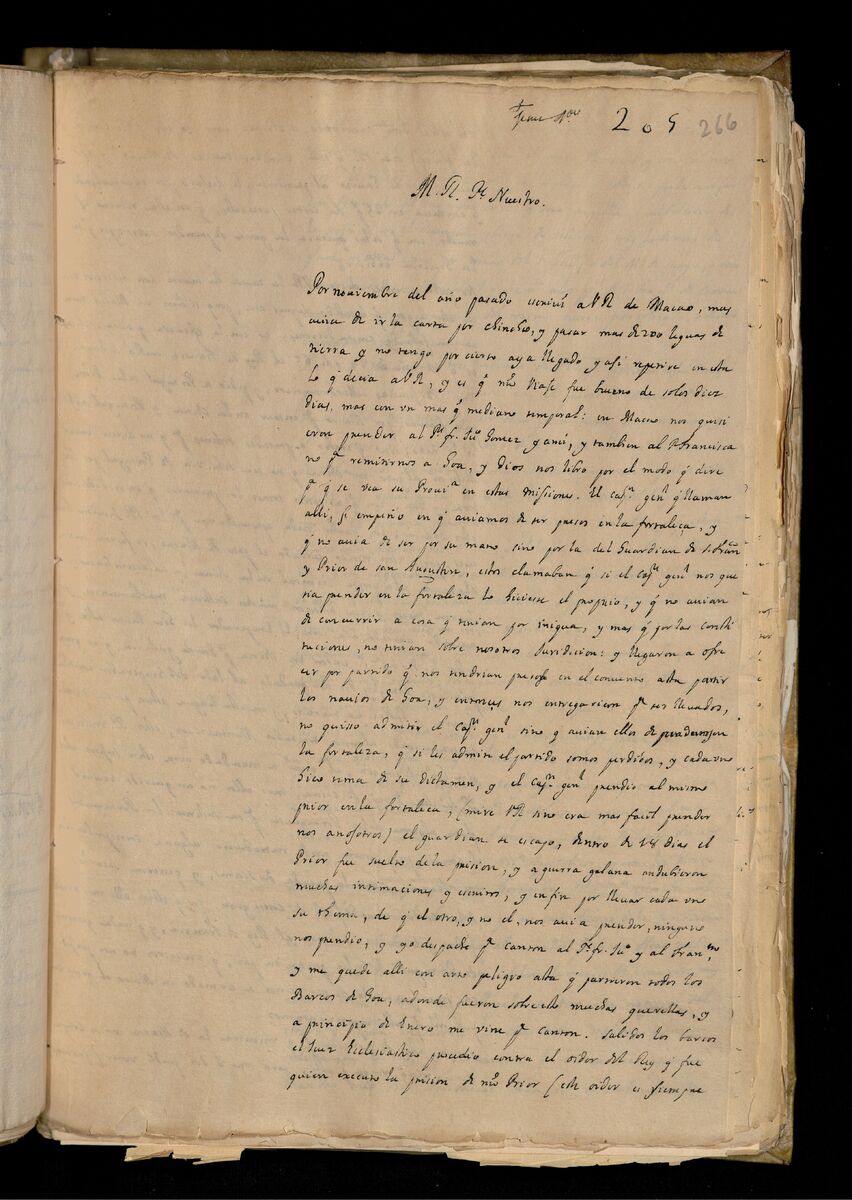 205 266
M. R. Pe Nuestro.
Por nouiembre del año pasado escriui a V R de Macao, mas
acuia de ir la carta por chincheo, y pasar mas de 200 leguas de
tierra y no tengo por cierto aya llegado y asi repetire en esta
lo q decia a V R, y es q nro viaje fue bueno de solos diez
dias, mas con vn mas q mediano temporal: en Macao nos quisi
eron prender al Pe fr. Juo Gomez y a mi, y tambien al P. Francisca
no pa remitirnos a Goa, y Dios nos libro por el modo q dire
pa q se vea su Prouia en estas missiones. El capn genl q llaman
alli, se empeño en q auiamos de ser presos en la fortaleça, y
q no auia de ser por su mano sino por la del Guardian de s. Franco
y Prior de san Augustin, estos clamaban q si el capn genl nos que
ria prender en la fortaleza lo hiciesse el proprio, y q no auian
de concurrir a cosa q tenian por iniqua, y mas q por las consti
tuciones, no tenian sobre nosotros Juridicion: y llegaron a ofre
cer por partido q nos tendrian presos en el conuento asta partir
los nauios de Goa, y entonces nos entregarian pa ser lleuados,
no quisso admitir el capn genl sino q auian ellos de prendernos en
la fortaleza, q si les admite el partido somos perdidos, y cada vno
hico tema de su dictamen, y el capn genl prendio al mismo
prior en la fortaleca, (mire V R sino era mas facil prender
nos a nosotros) el guardian se escapo, dentro de 18 dias el
Prior fue suelto de la prision, y a guerra galana andubieron
muchas intimaciones y escritos, y en fin por lleuar cada vno
su thema, de q el otro, y no el, nos auia prender, ninguno
nos prendio, y yo despache pa canton al Pe fr. Juo y al Franno,
y me quede alli con arto peligro asta q partieron todos los
Barcos de Goa, adonde fueron sobre esto muchas querellas, y
a principio de Enero me vine pa canton. Salidos los barcos
el Juez Ecclesiastico procedio contra el oidor del Rey q fue
quien executo la prision de nro Prior (este oidor es siempre